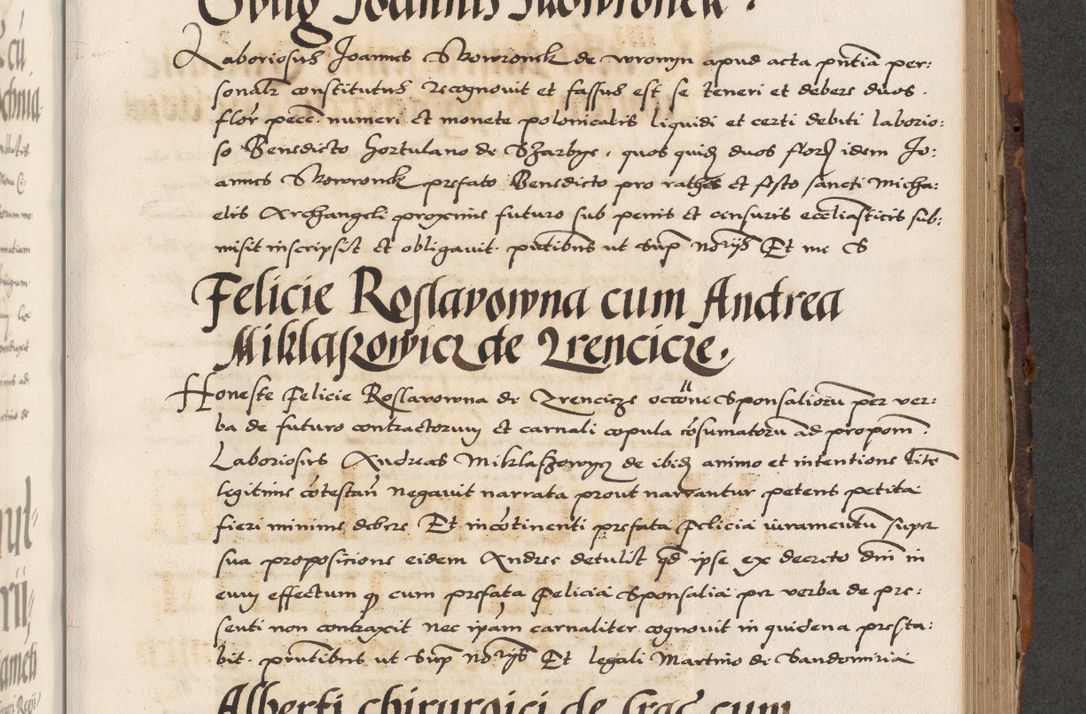 Joannis Skowronek
Laboriosus Joannes Skowronek de wronyn apud acta pntia per:
sonalr constitutus Recognovit et fassus est se teneri et debere duos
flor pecc numeri et monete polonicalis liquidi et certi debiti laborio:
so Benedicto Hortulano de quos quidz duos flor idem Jo:
annes Skowronek prefato Benedicto pro festo sancti Micha:
elis Archangeli proxime futuro sub penis et censuris ecclesiasticis sub:
misit inscripsit et obligavit pntibus ut sup norijs Et me S
Felicie Roslavowna cum Andrea
Miklaszowicz de Zrencicze.
Honeste Felicie Roslavowna de Zrencicze occone Sponsalioru per ver:
ba de futuro contractorum et carnali copula cosumatoru ad propom
Laboriosus Andreas Miklaszowycz de ibidz animo et intentione lite
legitime cotestan negavit narrata prout narrantur petens petita
fieri minime debere Et incotinenti prefata Felicia iuramentu super
sua proposicione eidem Andree detulit qd ipse ex decreto dni in
eum effectum q cum prefata Felicia Sponsalia per verba de pre:
senti non contraxit nec ipam carnaliter cognovit in quidena presta:
bit pntibus ut sup norijs Et legali Martino de Sandomiria
Alberti chirurgici de cum